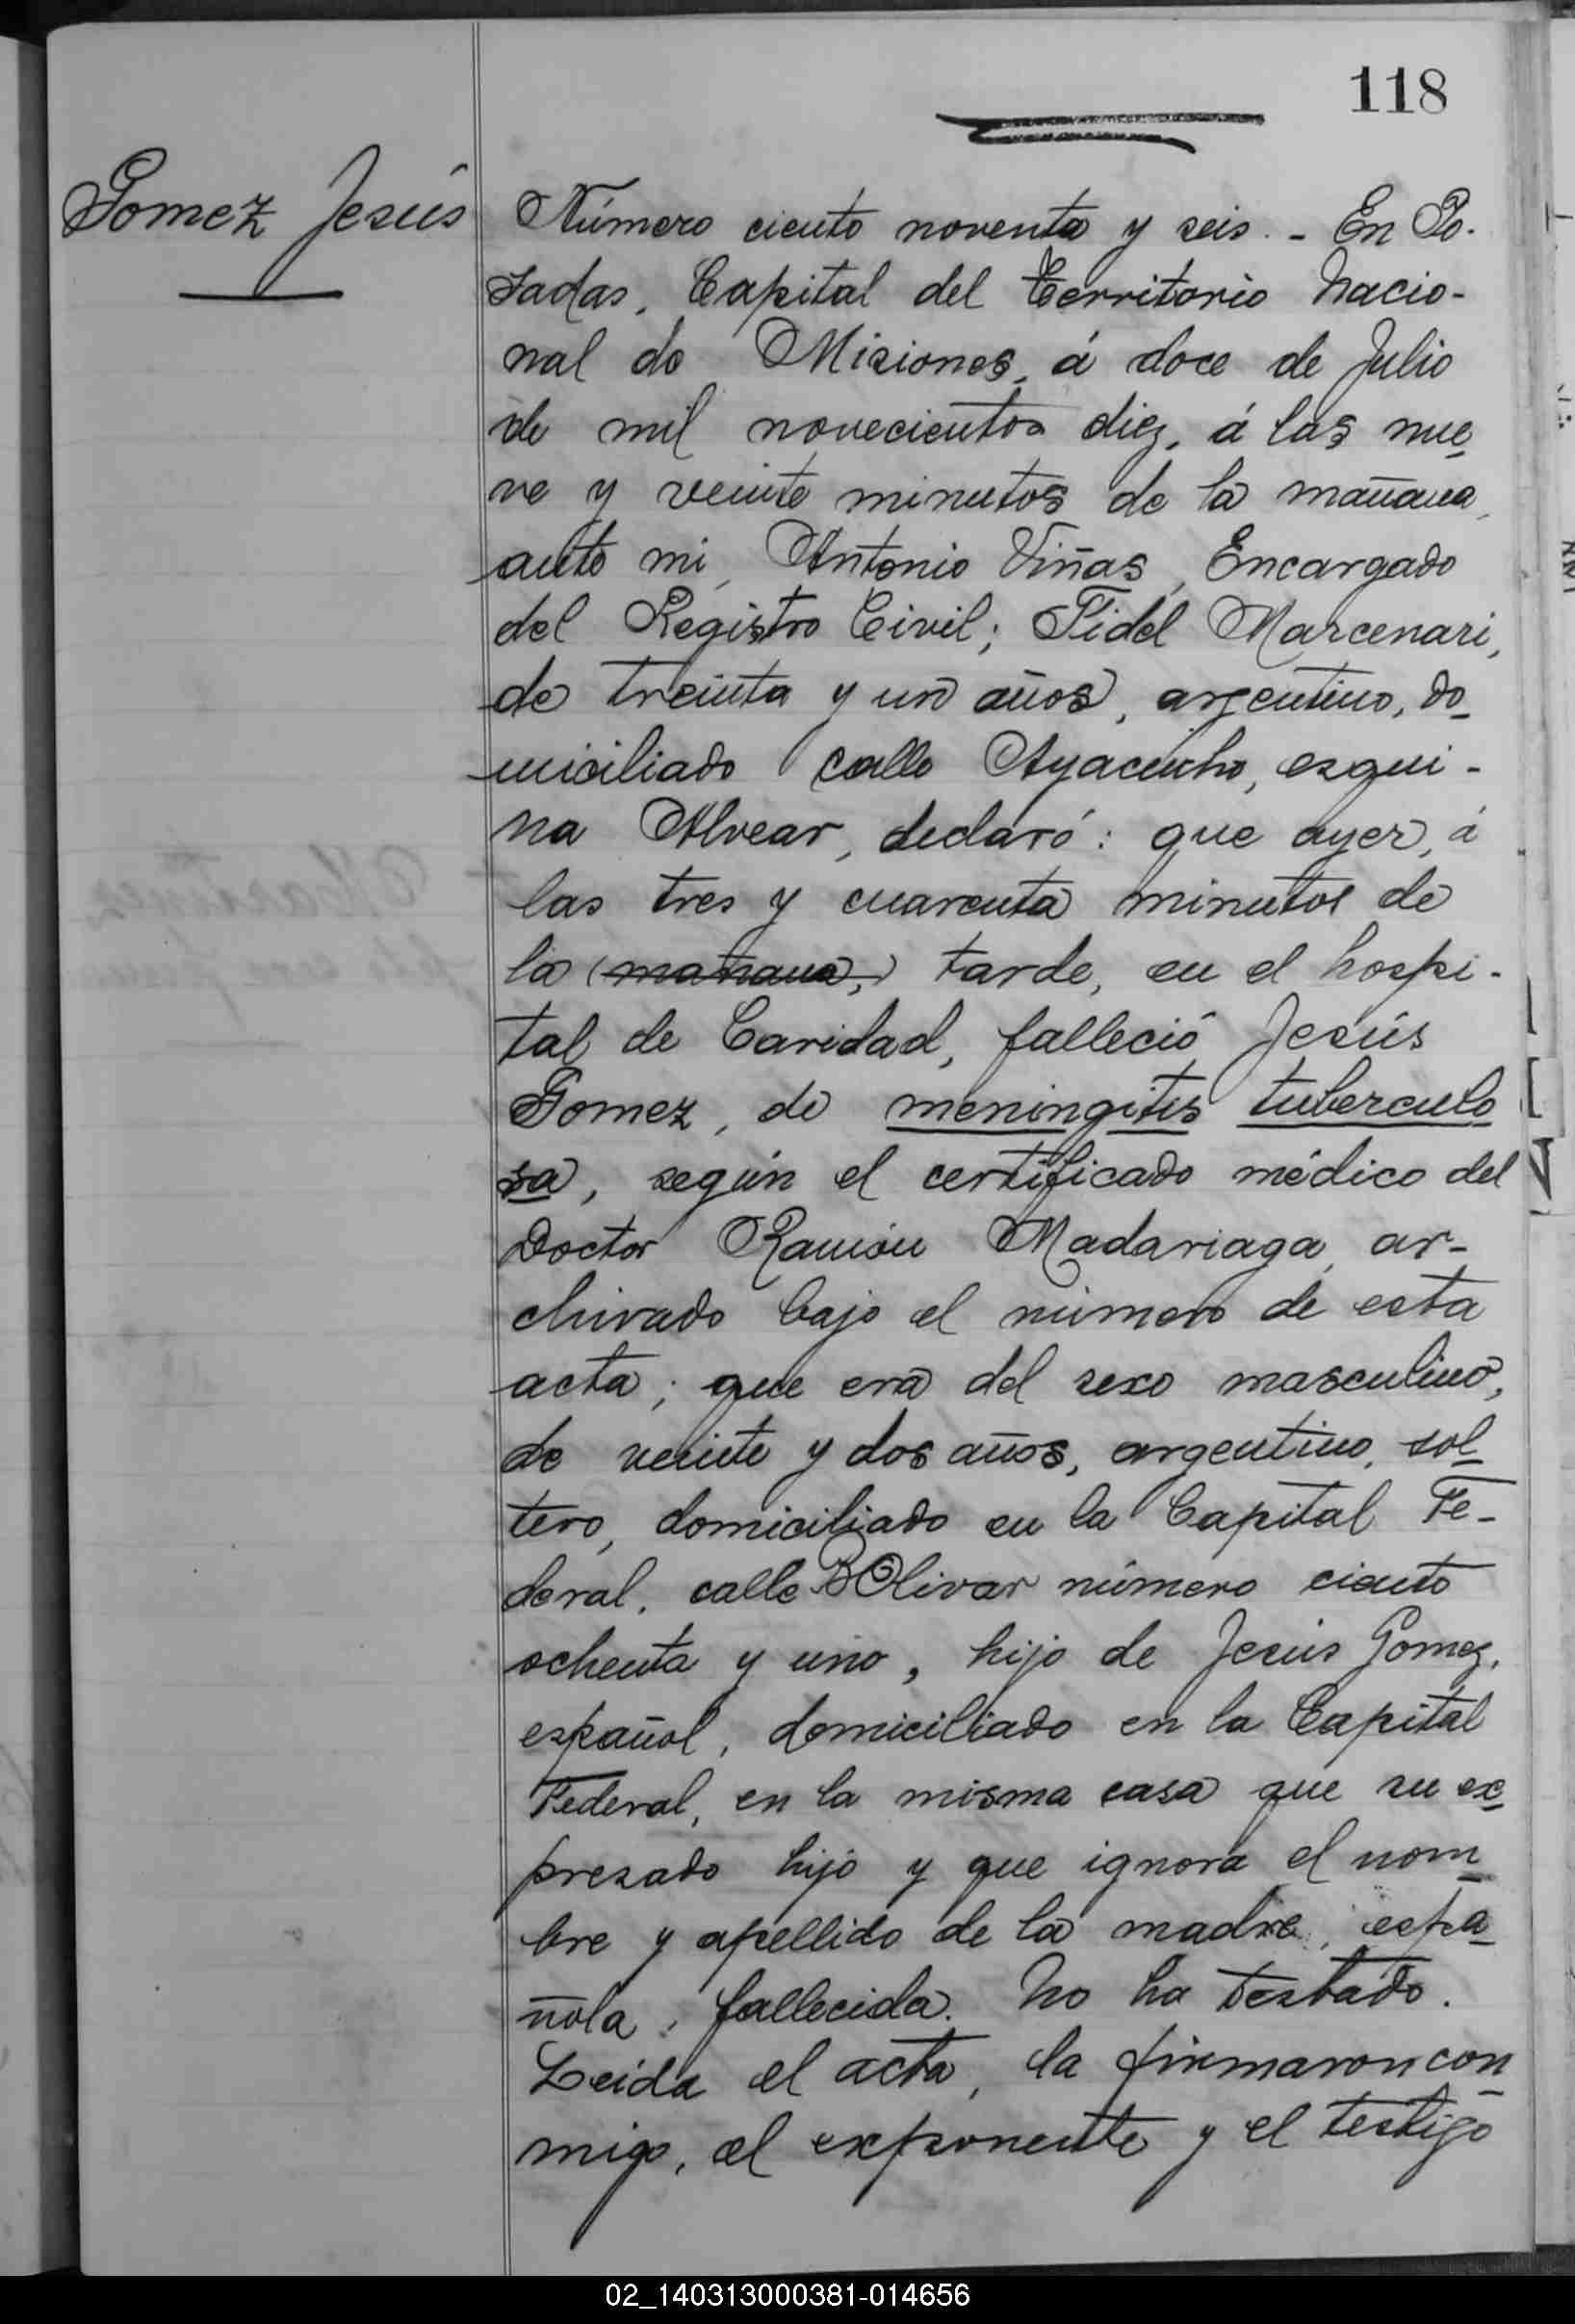 118
Gomez Jesús
Número ciento noventa y seis. - En Po-
sadas, Capital del Territorio Nacio-
nal de Misiones, á doce de Julio
de mil novecientos diez, á las nue-
ve y veinte minutos de la mañana,
ante mi, Antonio Viñas, Encargado
del Registro Civil; Fidel Marcenari,
de treinta y un años, argentino, do-
miciliado calle Ayacucho, esqui-
na Alvear, declaró: que ayer, á
las tres y cuarenta minutos de
la (mañana,) tarde, en el hospi-
tal de Caridad, falleció Jesús
Gomez, de meningitis tuberculo
sa, según el certificado médico del
Doctor Ramón Madariaga, ar-
chivado bajo el número de esta
acta; que era del sexo masculino,
de veinte y dos años, argentino, sol-
tero, domiciliado en la Capital Fe-
deral, calle BOlivar número ciento
ochenta y uno, hijo de Jesús Gomez,
español, domiciliado en la Capital
Federal, en la misma casa que su ex-
presado hijo y que ignora el nom-
bre y apellido de la madre, espa-
ñola, fallecida. No ha testado.
Leida el acta, la firmaron con-
migo, el exponente y el testigo
02_140313000381-014656